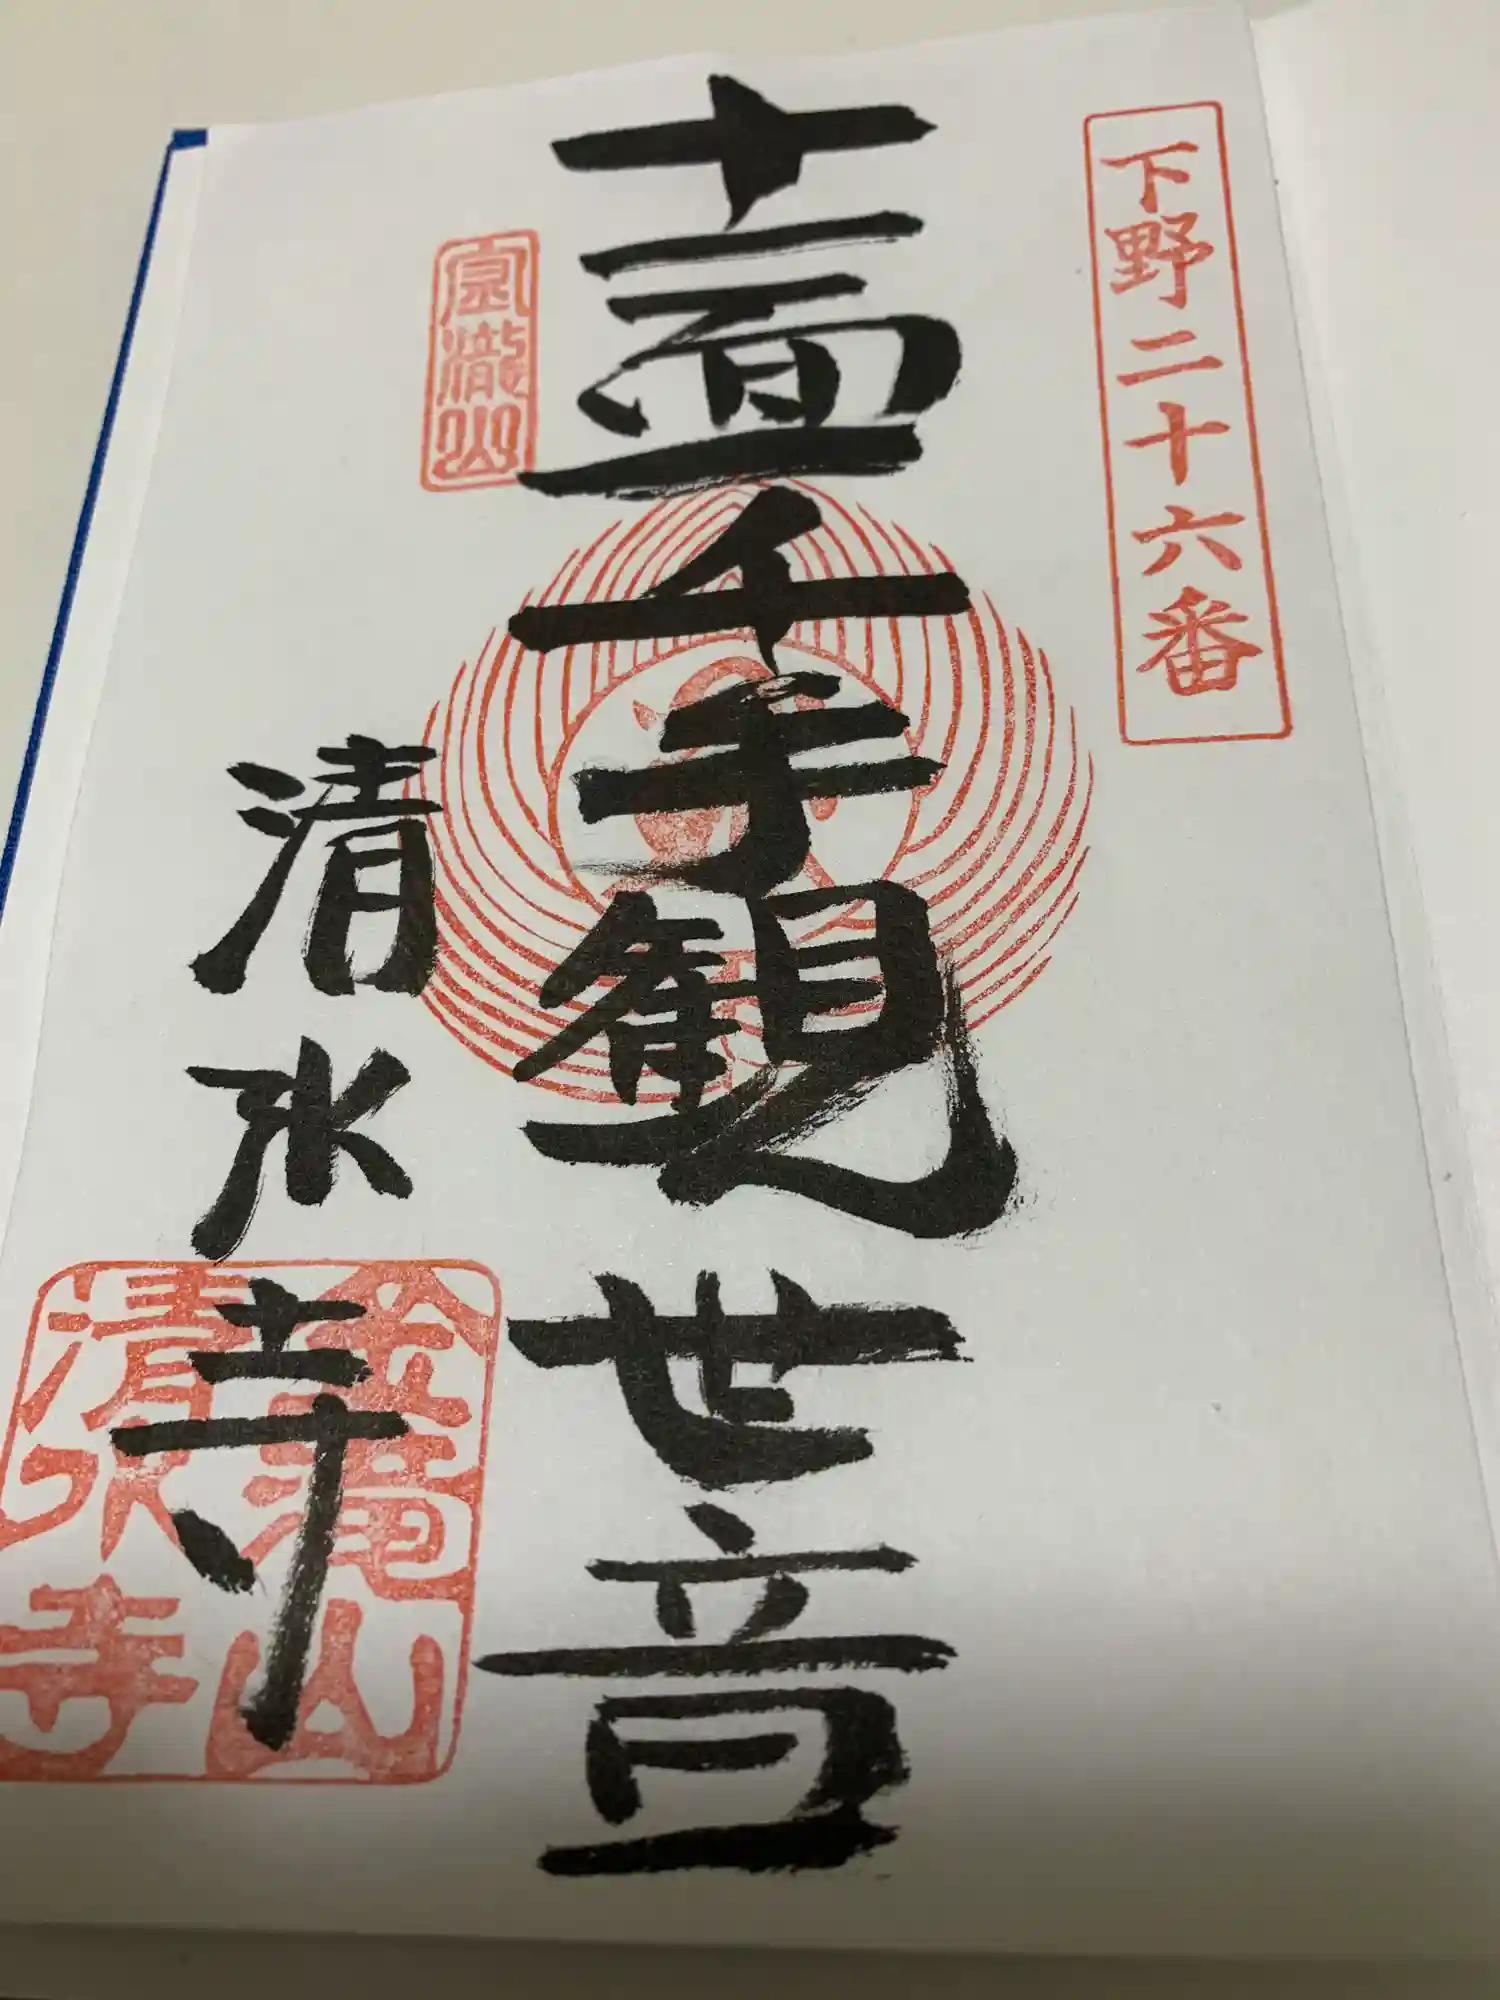 下野二十六番
十一面千手観世音
清水寺
金瀧山
清水寺